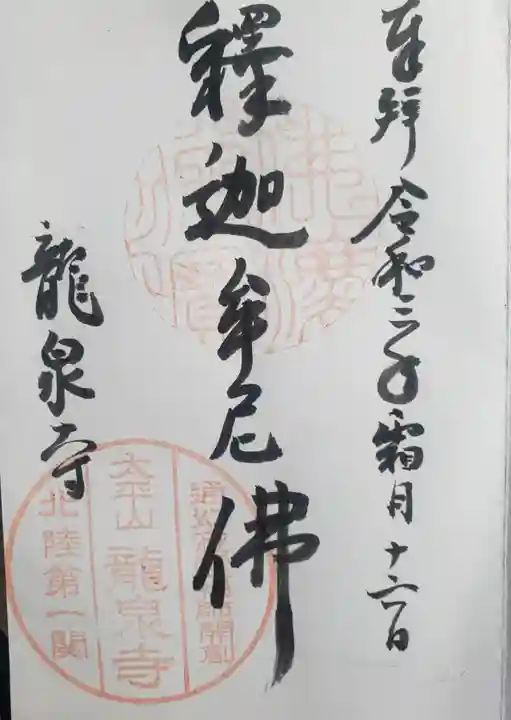 奉拝 令和三年霜月十六日
釋迦牟尼佛
佛法僧寳
龍泉寺
開創
太平山 龍泉寺
北陸第一関